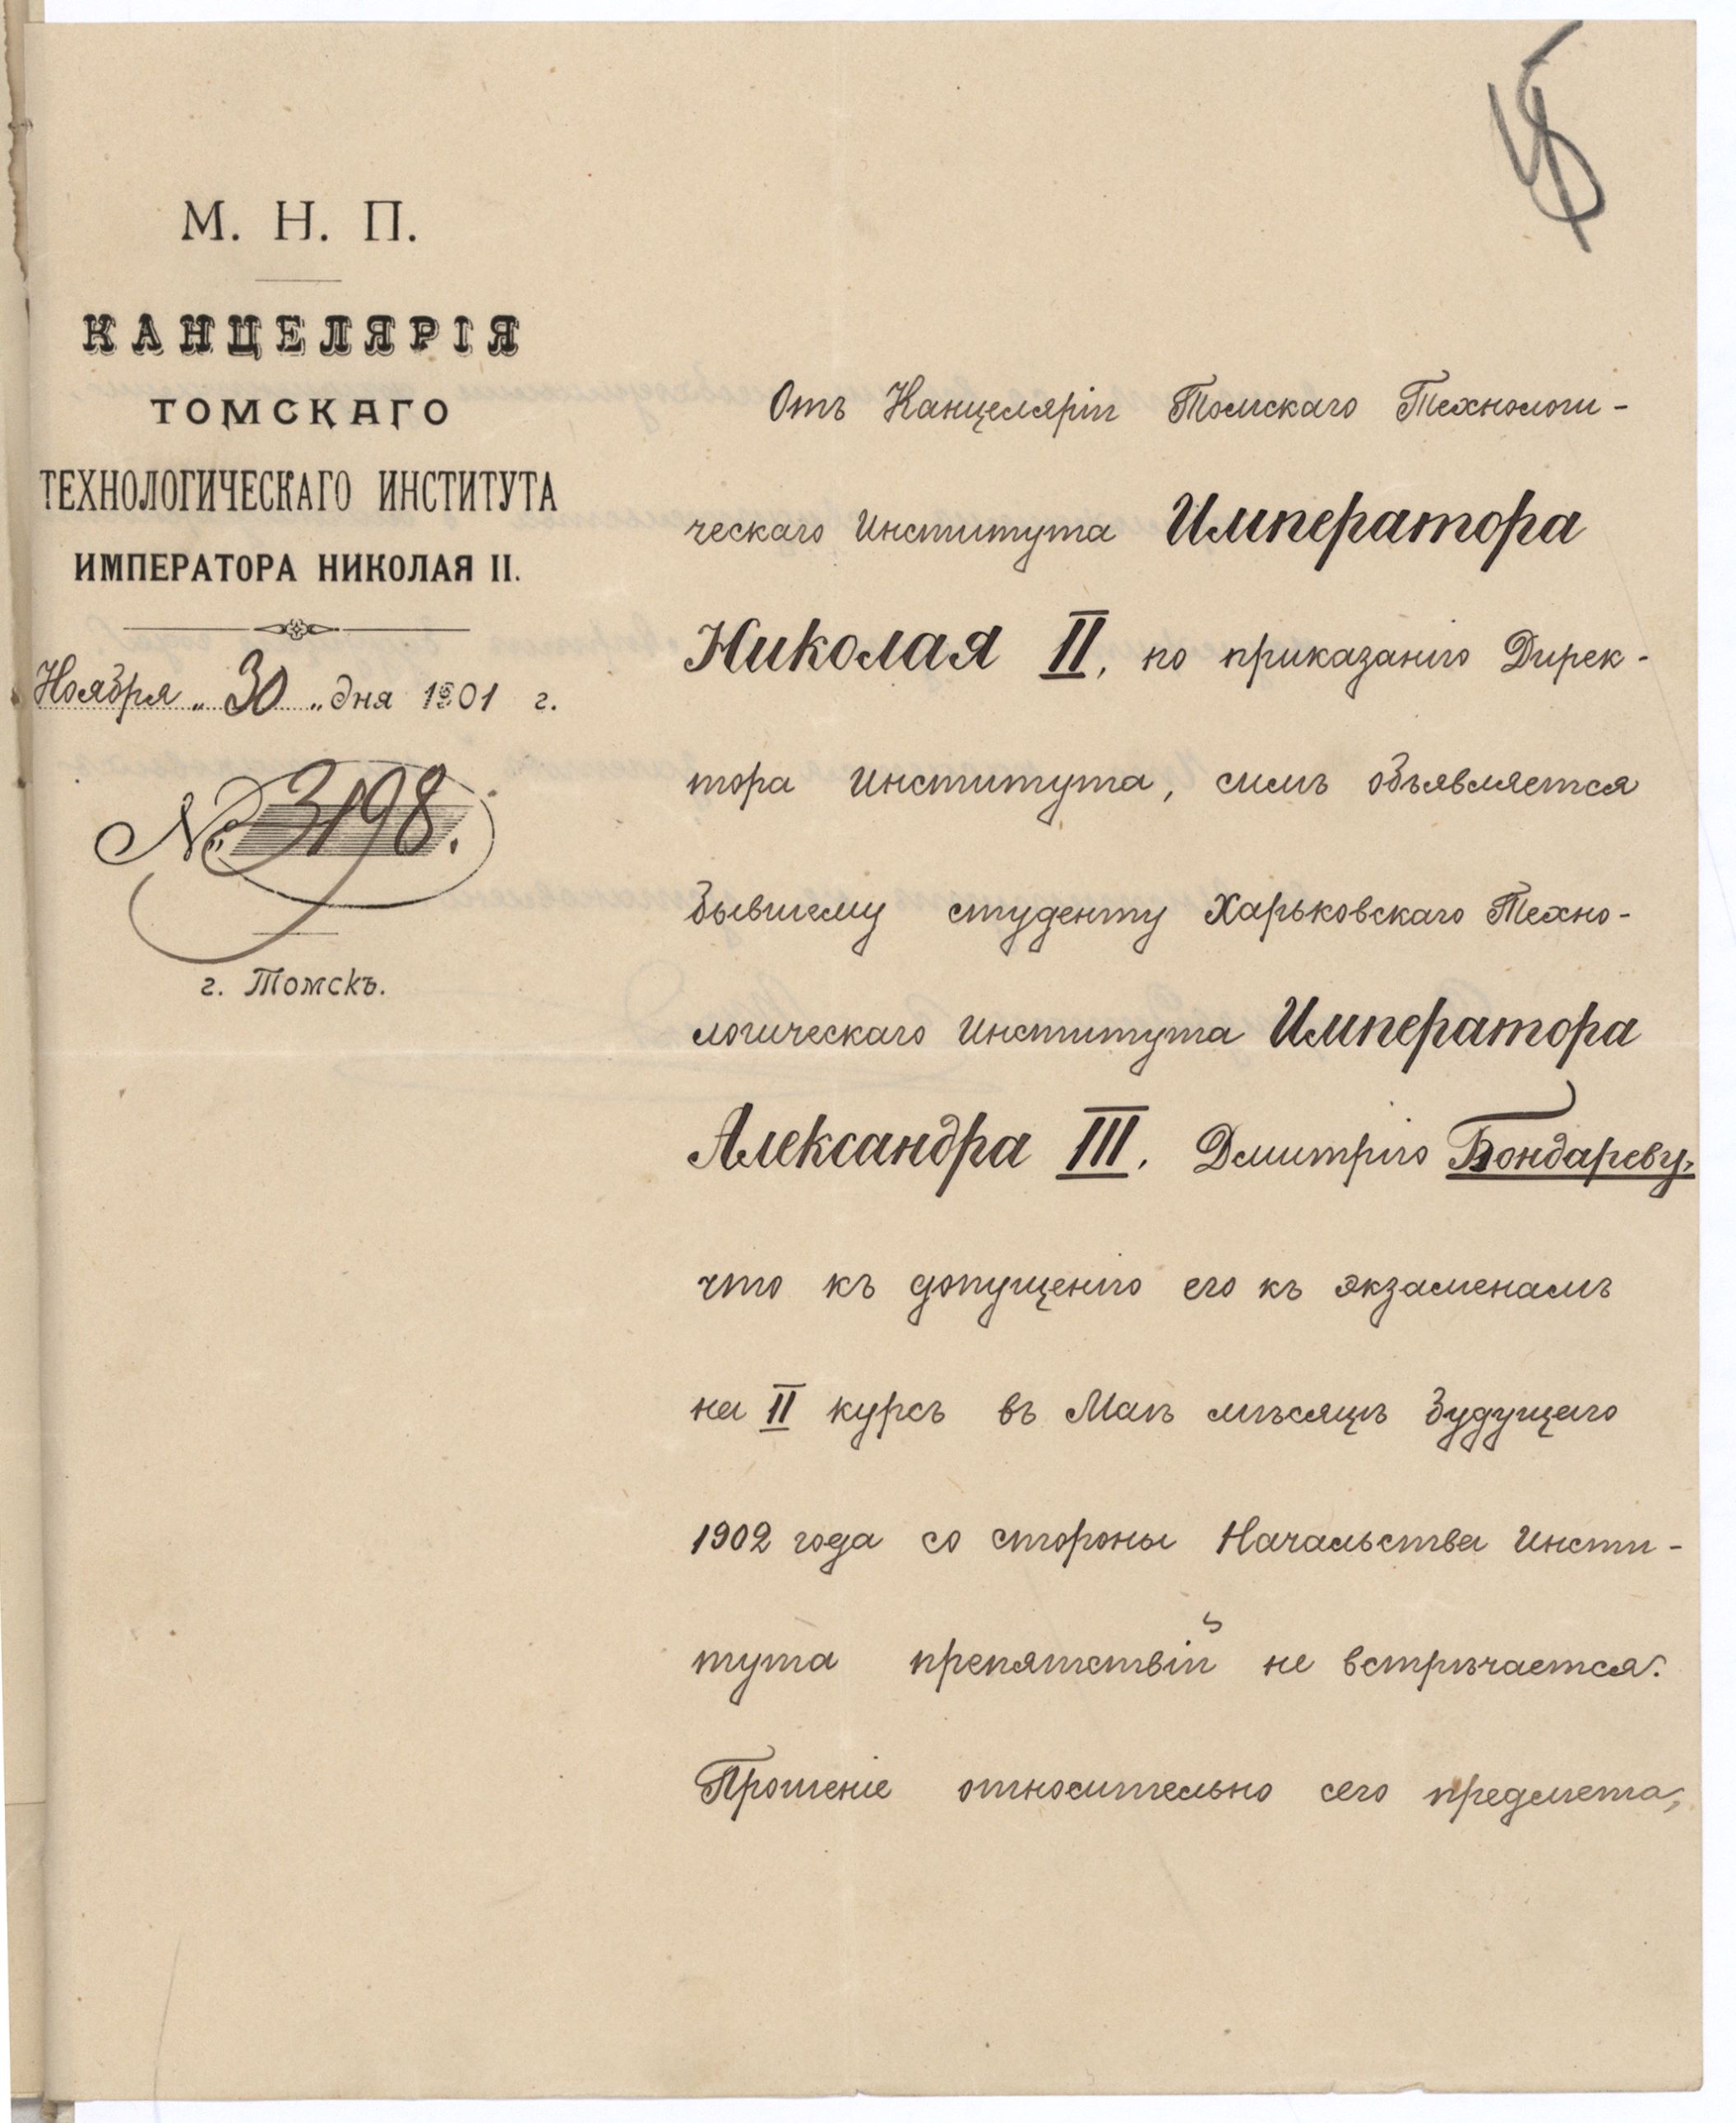 М. Н. П.
КАНЦЕЛЯРІЯ
ТОМСКАГО
ТЕХНОЛОГИЧЕСКАГО ИНСТИТУТА
ИМПЕРАТОРА НИКОЛАЯ II.
Ноября „ 30 „ дня 1901 г.
№ 3198.
г. Томскъ.
Отъ Канцеляріи Томскаго Технологи-
ческаго Института Императора
Николая II, по приказанію Дирек-
тора Института, симъ объявляется
бывшему студенту Харьковскаго Техно-
логическаго Института Императора
Александра III. Дмитрію Бондареву,
что къ допущенію его къ экзаменамъ
на II курсъ въ Маѣ мѣсяцѣ будущаго
1902 года со стороны Начальства Инсти-
тута препятствій не встрѣчается.
Прошеніе относительно сего предмета,